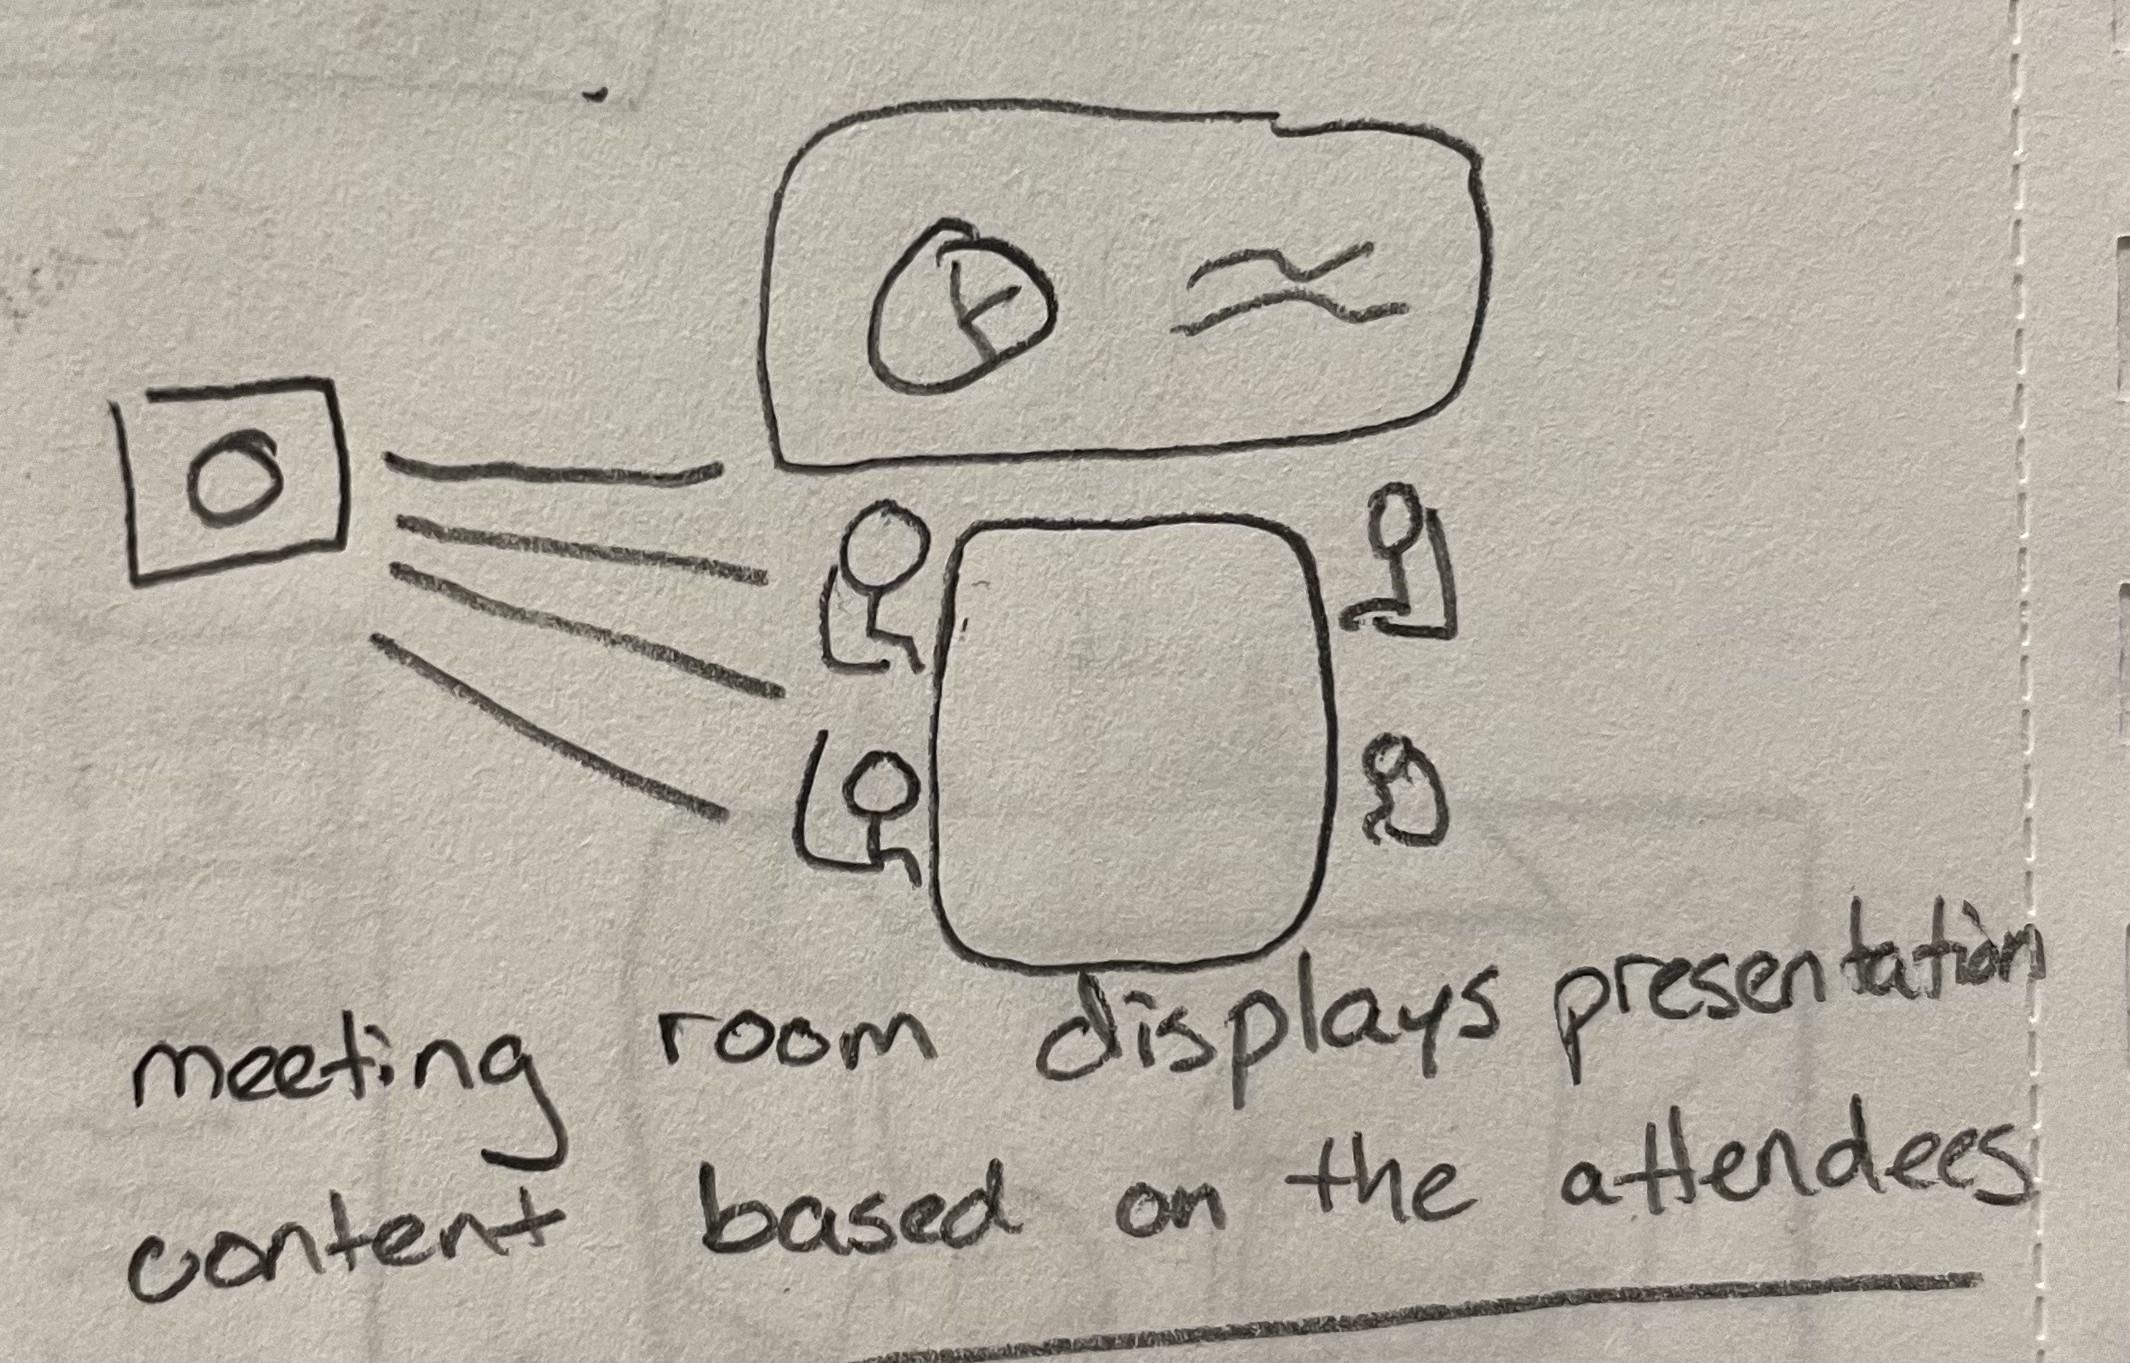 meeting room displays presentation
content based on the attendees